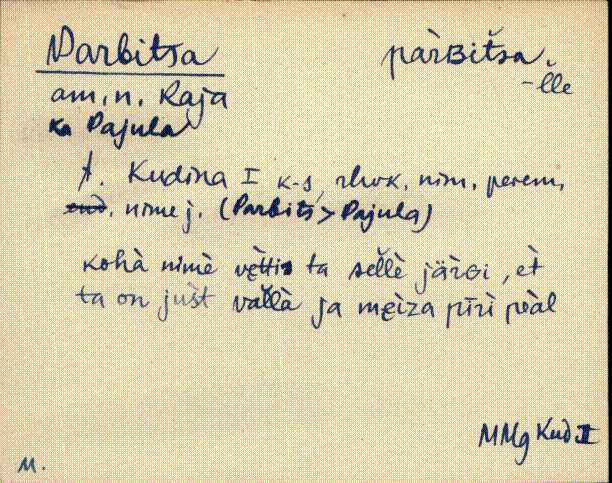 Parbitsa pàrʙitša
-šlle
am. n. Raja
ka Pajula
t. Kudina I k-s, rhvk. nim. perem.
end. nime j. (Parbits > Pajula)
kohà nimè ta sellè järGi, èt
ta on jušt vallà ja męiza pīrì peàl
MMg Kud II
M.